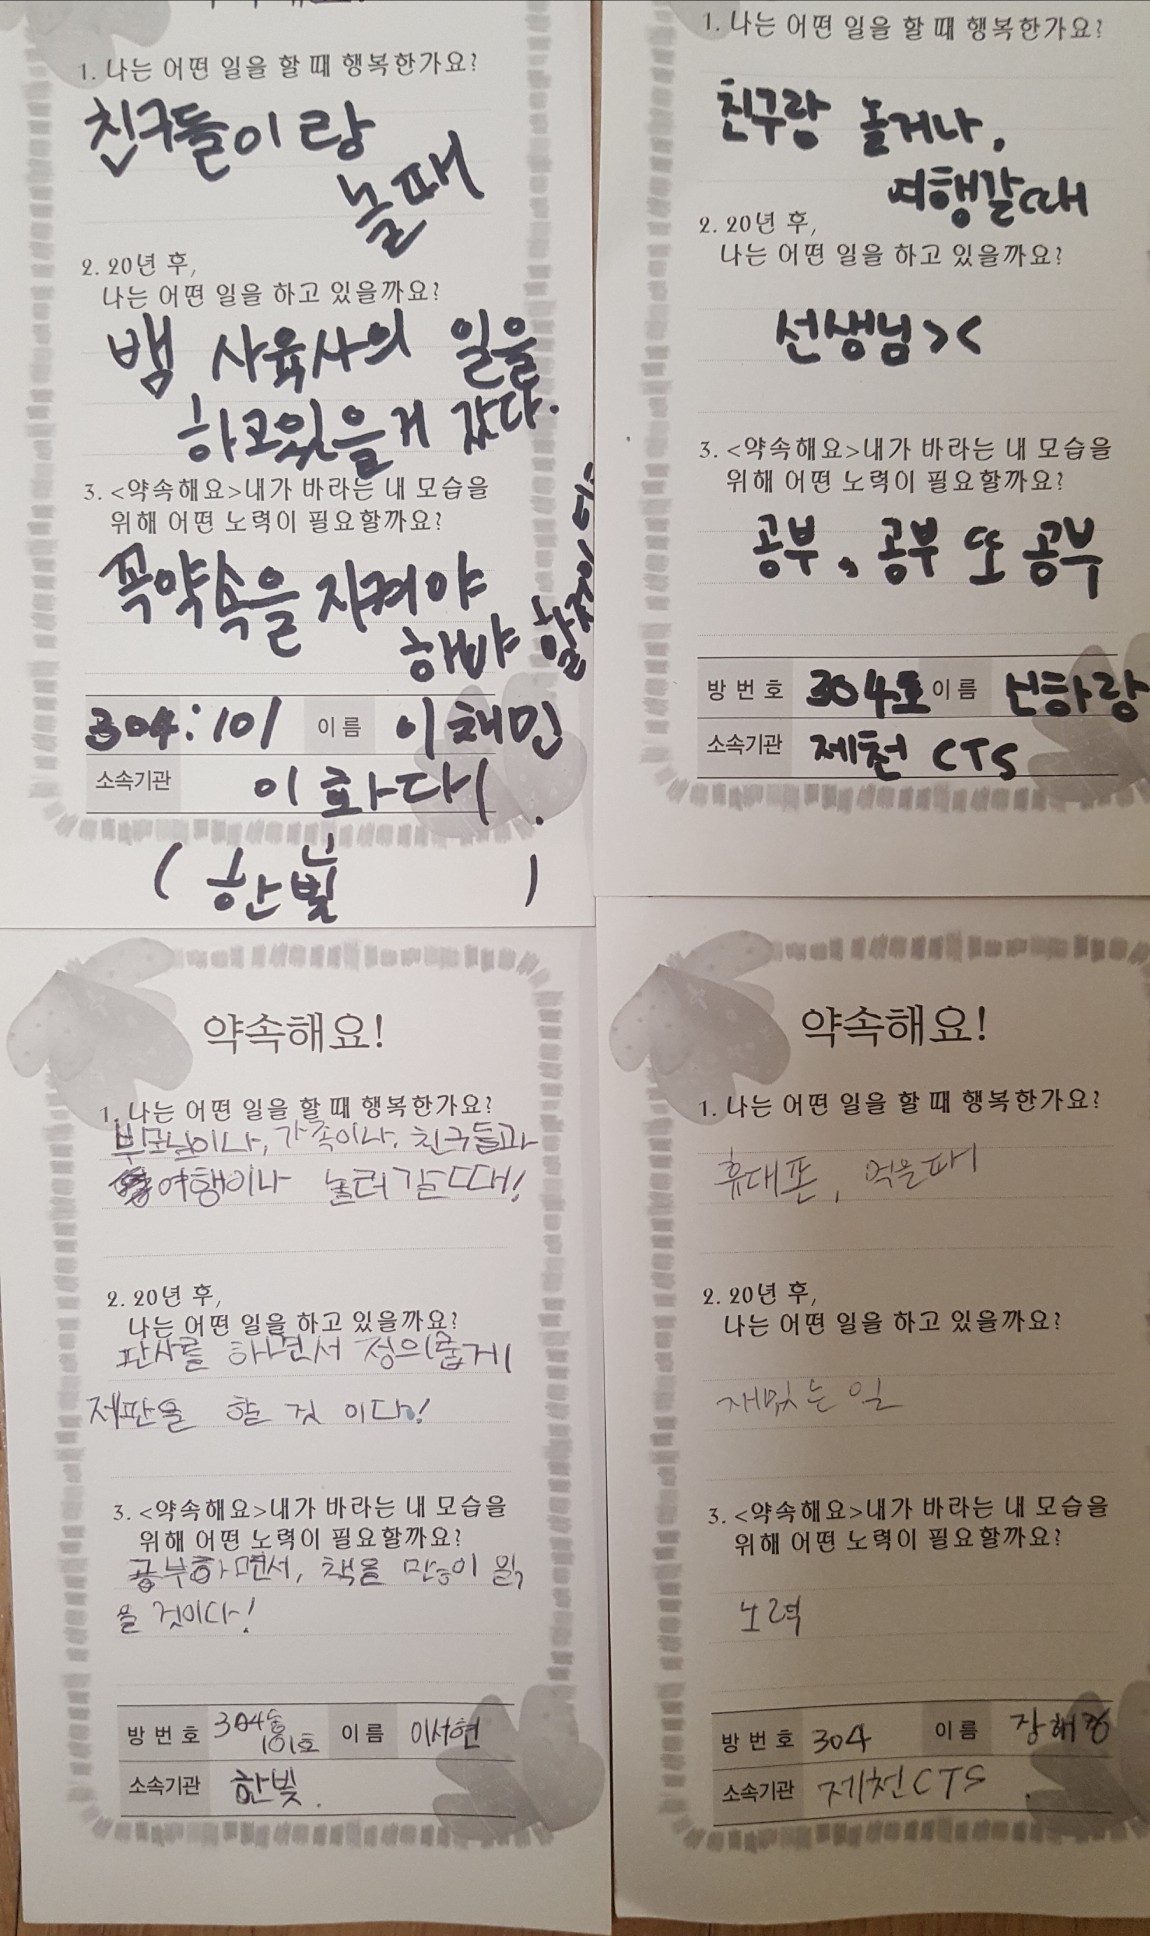 1. 나는 어떤 일을 할 때 행복한가요?
친구들이랑
놀때
2. 20년 후,
나는 어떤 일을 하고 있을까요?
뱀 사육사의 일을
하고있을게 갔다.
3. <약속해요>내가 바라는 내 모습을
위해 어떤 노력이 필요할까요?
꼭약속을 지켜야
해야 할것이다.
304:101 이름 이채민
소속기관 이화다니.
(한빛)
1. 나는 어떤 일을 할 때 행복한가요?
친구랑 놀거나,
여행갈때
2. 20년 후,
나는 어떤 일을 하고 있을까요?
선생님><
3. <약속해요>내가 바라는 내 모습을
위해 어떤 노력이 필요할까요?
공부, 공부 또 공부
방 번호 304호 이름 선하랑
소속기관 제천 CTS
약속해요!
1. 나는 어떤 일을 할 때 행복한가요?
부모님이나, 가족이나, 친구들과
여행이나 놀러갈때!
2. 20년 후,
나는 어떤 일을 하고 있을까요?
판사를 하면서 정의롭게
재판을 할 것 이다!
3. <약속해요>내가 바라는 내 모습을
위해 어떤 노력이 필요할까요?
공부하면서, 책을 많이 읽
을 것이다!
방 번호 304동 101호 이름 이서현
소속기관 한빛.
약속해요!
1. 나는 어떤 일을 할 때 행복한가요?
휴대폰, 먹을때
2. 20년 후,
나는 어떤 일을 하고 있을까요?
재밌는 일
3. <약속해요>내가 바라는 내 모습을
위해 어떤 노력이 필요할까요?
노력
방 번호 304 이름 장해
소속기관 제천CTS